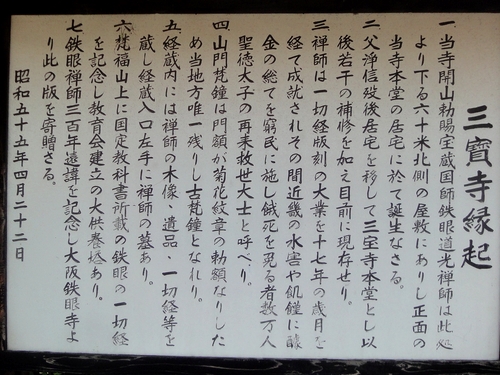 三寳寺縁起
一 当寺開山勅賜宝蔵国師鉄眼道光禅師は此処
より下る六十米北側の屋敷にありし正面の
当寺本堂の居宅に於て誕生なさる。
二 父浄信歿後居宅を移して三宝寺本堂とし以
後若干の補修を加え目前に現存せり。
三 禅師は一切経版刻の大業を十七年の歳月を
経て成就されその間近畿の水害や飢饉に醵
金の総てを窮民に施し餓死を免る者数万人
聖徳太子の再来救世大士と呼べり。
四 山門梵鐘は門額が菊花紋章の勅額なりした
め当地方唯一残りし古梵鐘となれり。
五 経蔵内には禅師の木像、遺品、一切経等を
蔵し経蔵入口左手に禅師の墓あり。
六 梵福山上に国定教科書所載の鉄眼の一切経
を記念し教育会建立の大供養塔あり。
七 鉄眼禅師三百年遠諱を記念し大阪鉄眼寺よ
り此の版を寄贈さる。
昭和五十五年四月二十二日